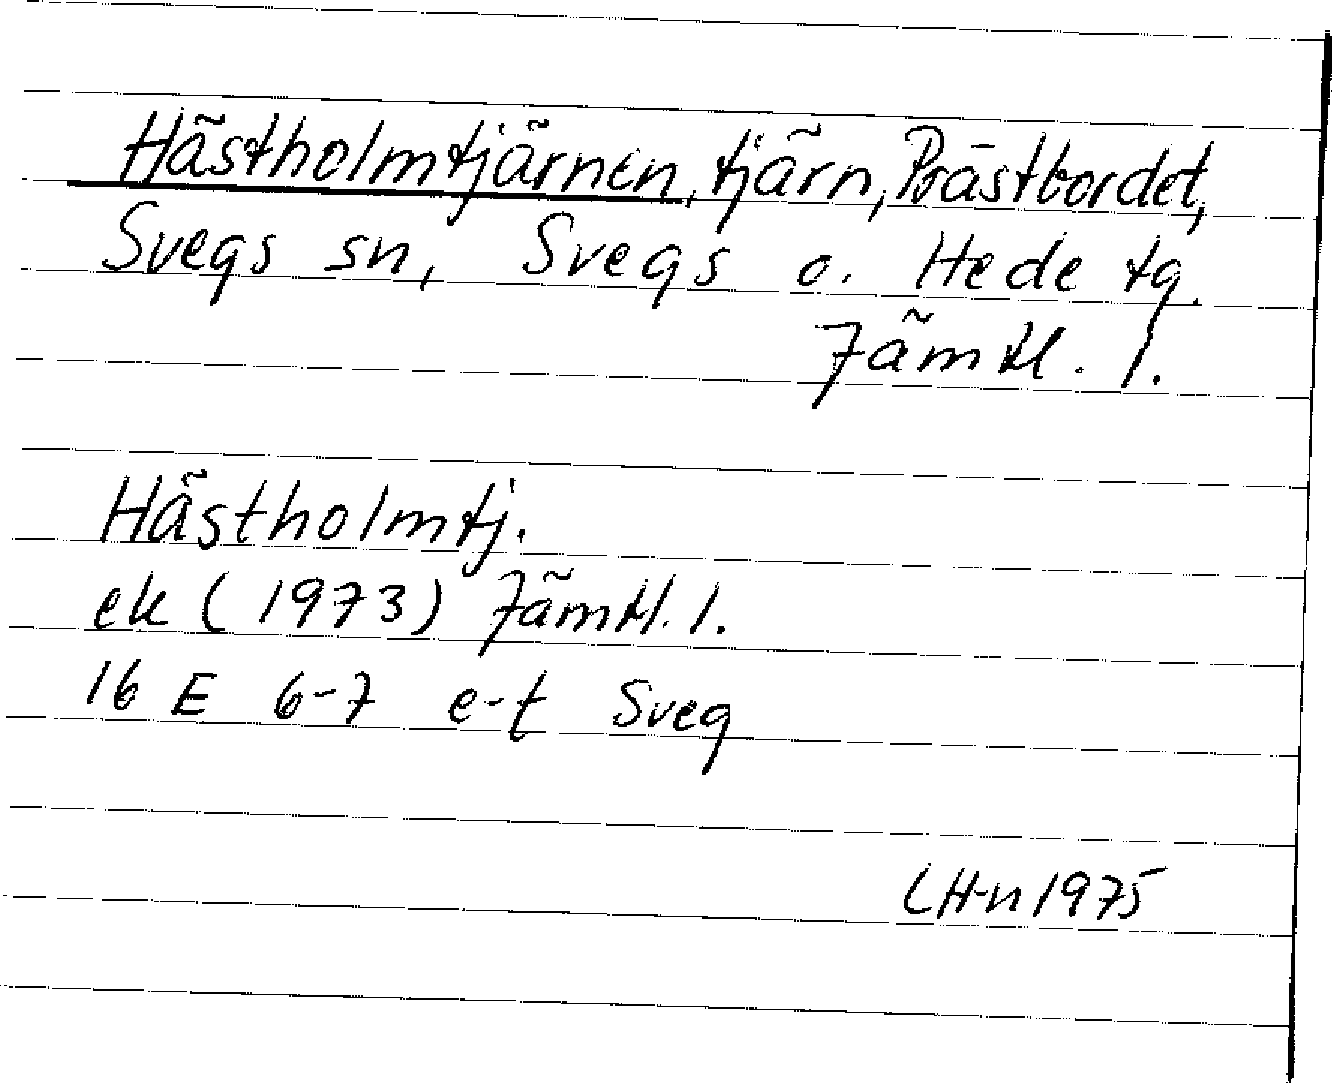 Hästholmtjärnen, tjärn, Prästbordet,
Svegs sn, Svegs o. Hede tg.
Jämtl. l.
Hästholmtj.
ek (1973) Jämtl. l.
16 E 6-7 e-f Sveg
LH-n 1975